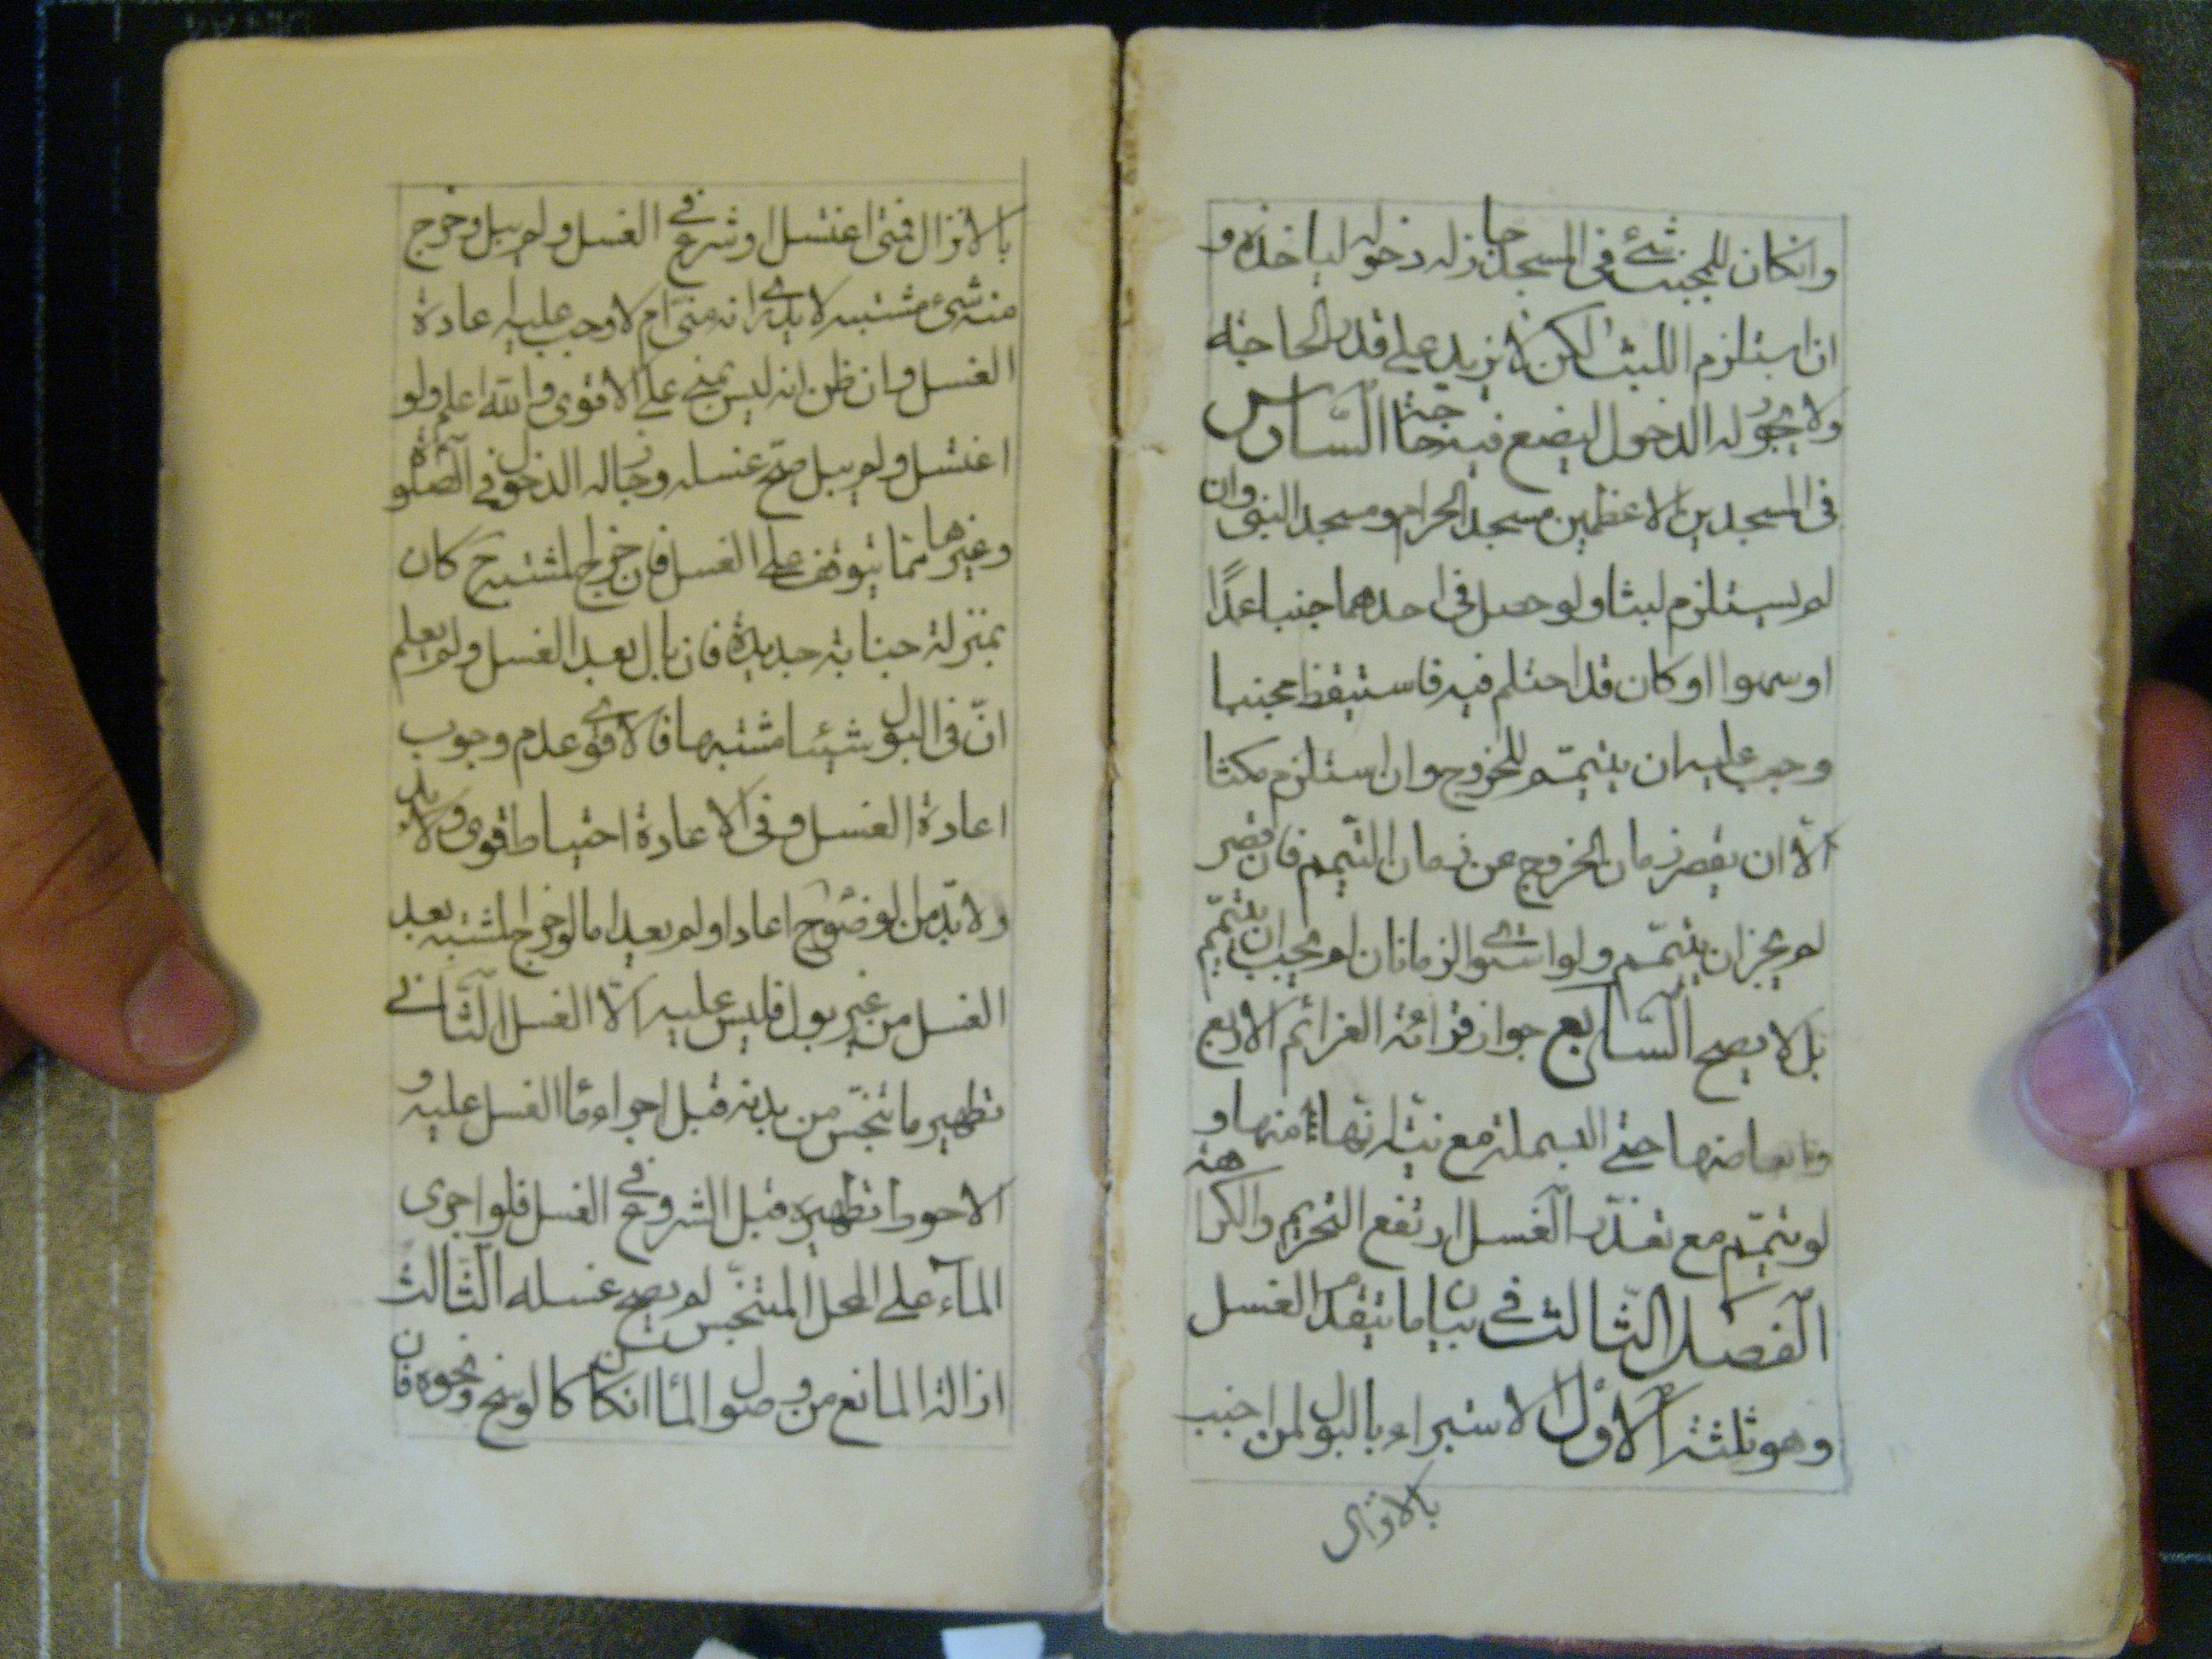 وانكان للمجنب شئ في المسجد جاز له دخوله لياخذه و
ان استلزم اللبث لكن لا يزيد على قدر الحاجة
ولا يجوز له الدخول ليضع فيه حاجة السادس
في المسجدين الاعظمين مسجد الحرام ومسجد النبي وان
لم يستلزم لبثا ولو حصل في احدهما جنبا عمدًا
او سهوا او كان قد احتلم فيه فاستيقظ مجنبا
وجب عليه ان يتيمّم للخروج وان استلزم مكثا
الّا ان يقصر زمان الخروج عن زمان التيمم فان قصر
لم يجز ان يتيمّم ولو استوى الزمانان لم يجب ان يتيمّم
بل لا يصح السّابع جواز قرائة العزائم الاربع
وابعاضها حتى البسملة مع نيّة انّها منها و
لو تيمّم مع تعذّر الغسل ارتفع التحريم والكراهة
الفصل الثّالث في بيان ما يتقدم الغسل
وهو ثلثة الاوّل الاستبراء بالبول لمن اجنب
بالانزال
بالانزال فمتى اغتسل او شرع في الغسل ولم يبل وخرج
منه شئ مشتبه لا يدرى انه منى ام لا وجب عليه اعادة
الغسل وان ظن انه ليس بمني على الاقوى والله اعلم ولو
اغتسل ولم يبل صحّ غسله وجاز له الدخول في الصّلوة
وغيرها ممّا يتوقف على الغسل فان خرج المشتبه ح كان
بمنزلة جنابة جديدة فان بال بعد الغسل ولم يعلم
انّ في البول شيئا مشتبها فالاقوى عدم وجوب
اعادة الغسل وفي الاعادة احتياط قوى ولابد
ولا بدّ من الوضوء ح اعاد او لم يعد اما لو خرج المشتبه بعد
الغسل من غير بول فليس عليه الّا الغسل الثّاني
تطهير ما تنجّس من بدنه قبل اجراء ماء الغسل عليه و
الاحوط تطهيره قبل الشروع في الغسل فلو اجرى
الماء على المحل المتنجّس لم يصح غسله الثّالث
ازالة المانع من وصول الماء ان كان كالوسخ ونحوه فان